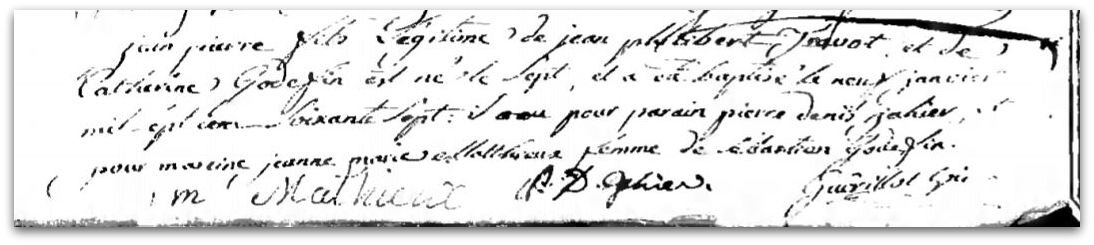 jean pierre fils Legitime de jean philibert Trevot et de
Catherine Godeffin est né le sept, et a eté baptisé le neuf janvier
mil sept cens soixante sept. il a eu pour parain pierre denis jahier, et
pour maraine jeanne marie Matthieux femme de sebastien Godeffin.
m Mathieux P. D. Jahier. Guérillot